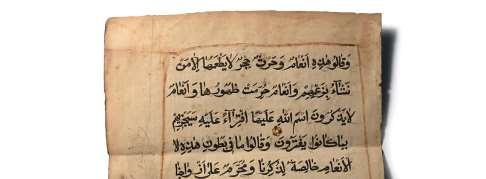 وَقَالُوا هٰذِهِ أَنْعَامٌ وَحَرْثٌ حِجْرٌ لَا يَطْعَمُهَا إِلَّا مَنْ
نَشَاءُ بِزَعْمِهِمْ وَأَنْعَامٌ حُرِّمَتْ ظُهُورُهَا وَأَنْعَامٌ
لَا يَذْكُرُونَ اسْمَ اللَّهِ عَلَيْهَا افْتِرَاءً عَلَيْهِ سَيَجْزِيهِمْ
بِمَا كَانُوا يَفْتَرُونَ وَقَالُوا مَا فِي بُطُونِ هٰذِهِ لا
لْأَنْعَامِ خَالِصَةٌ لِذُكُورِنَا وَمُحَرَّمٌ عَلَىٰ أَزْوَاجِنَا